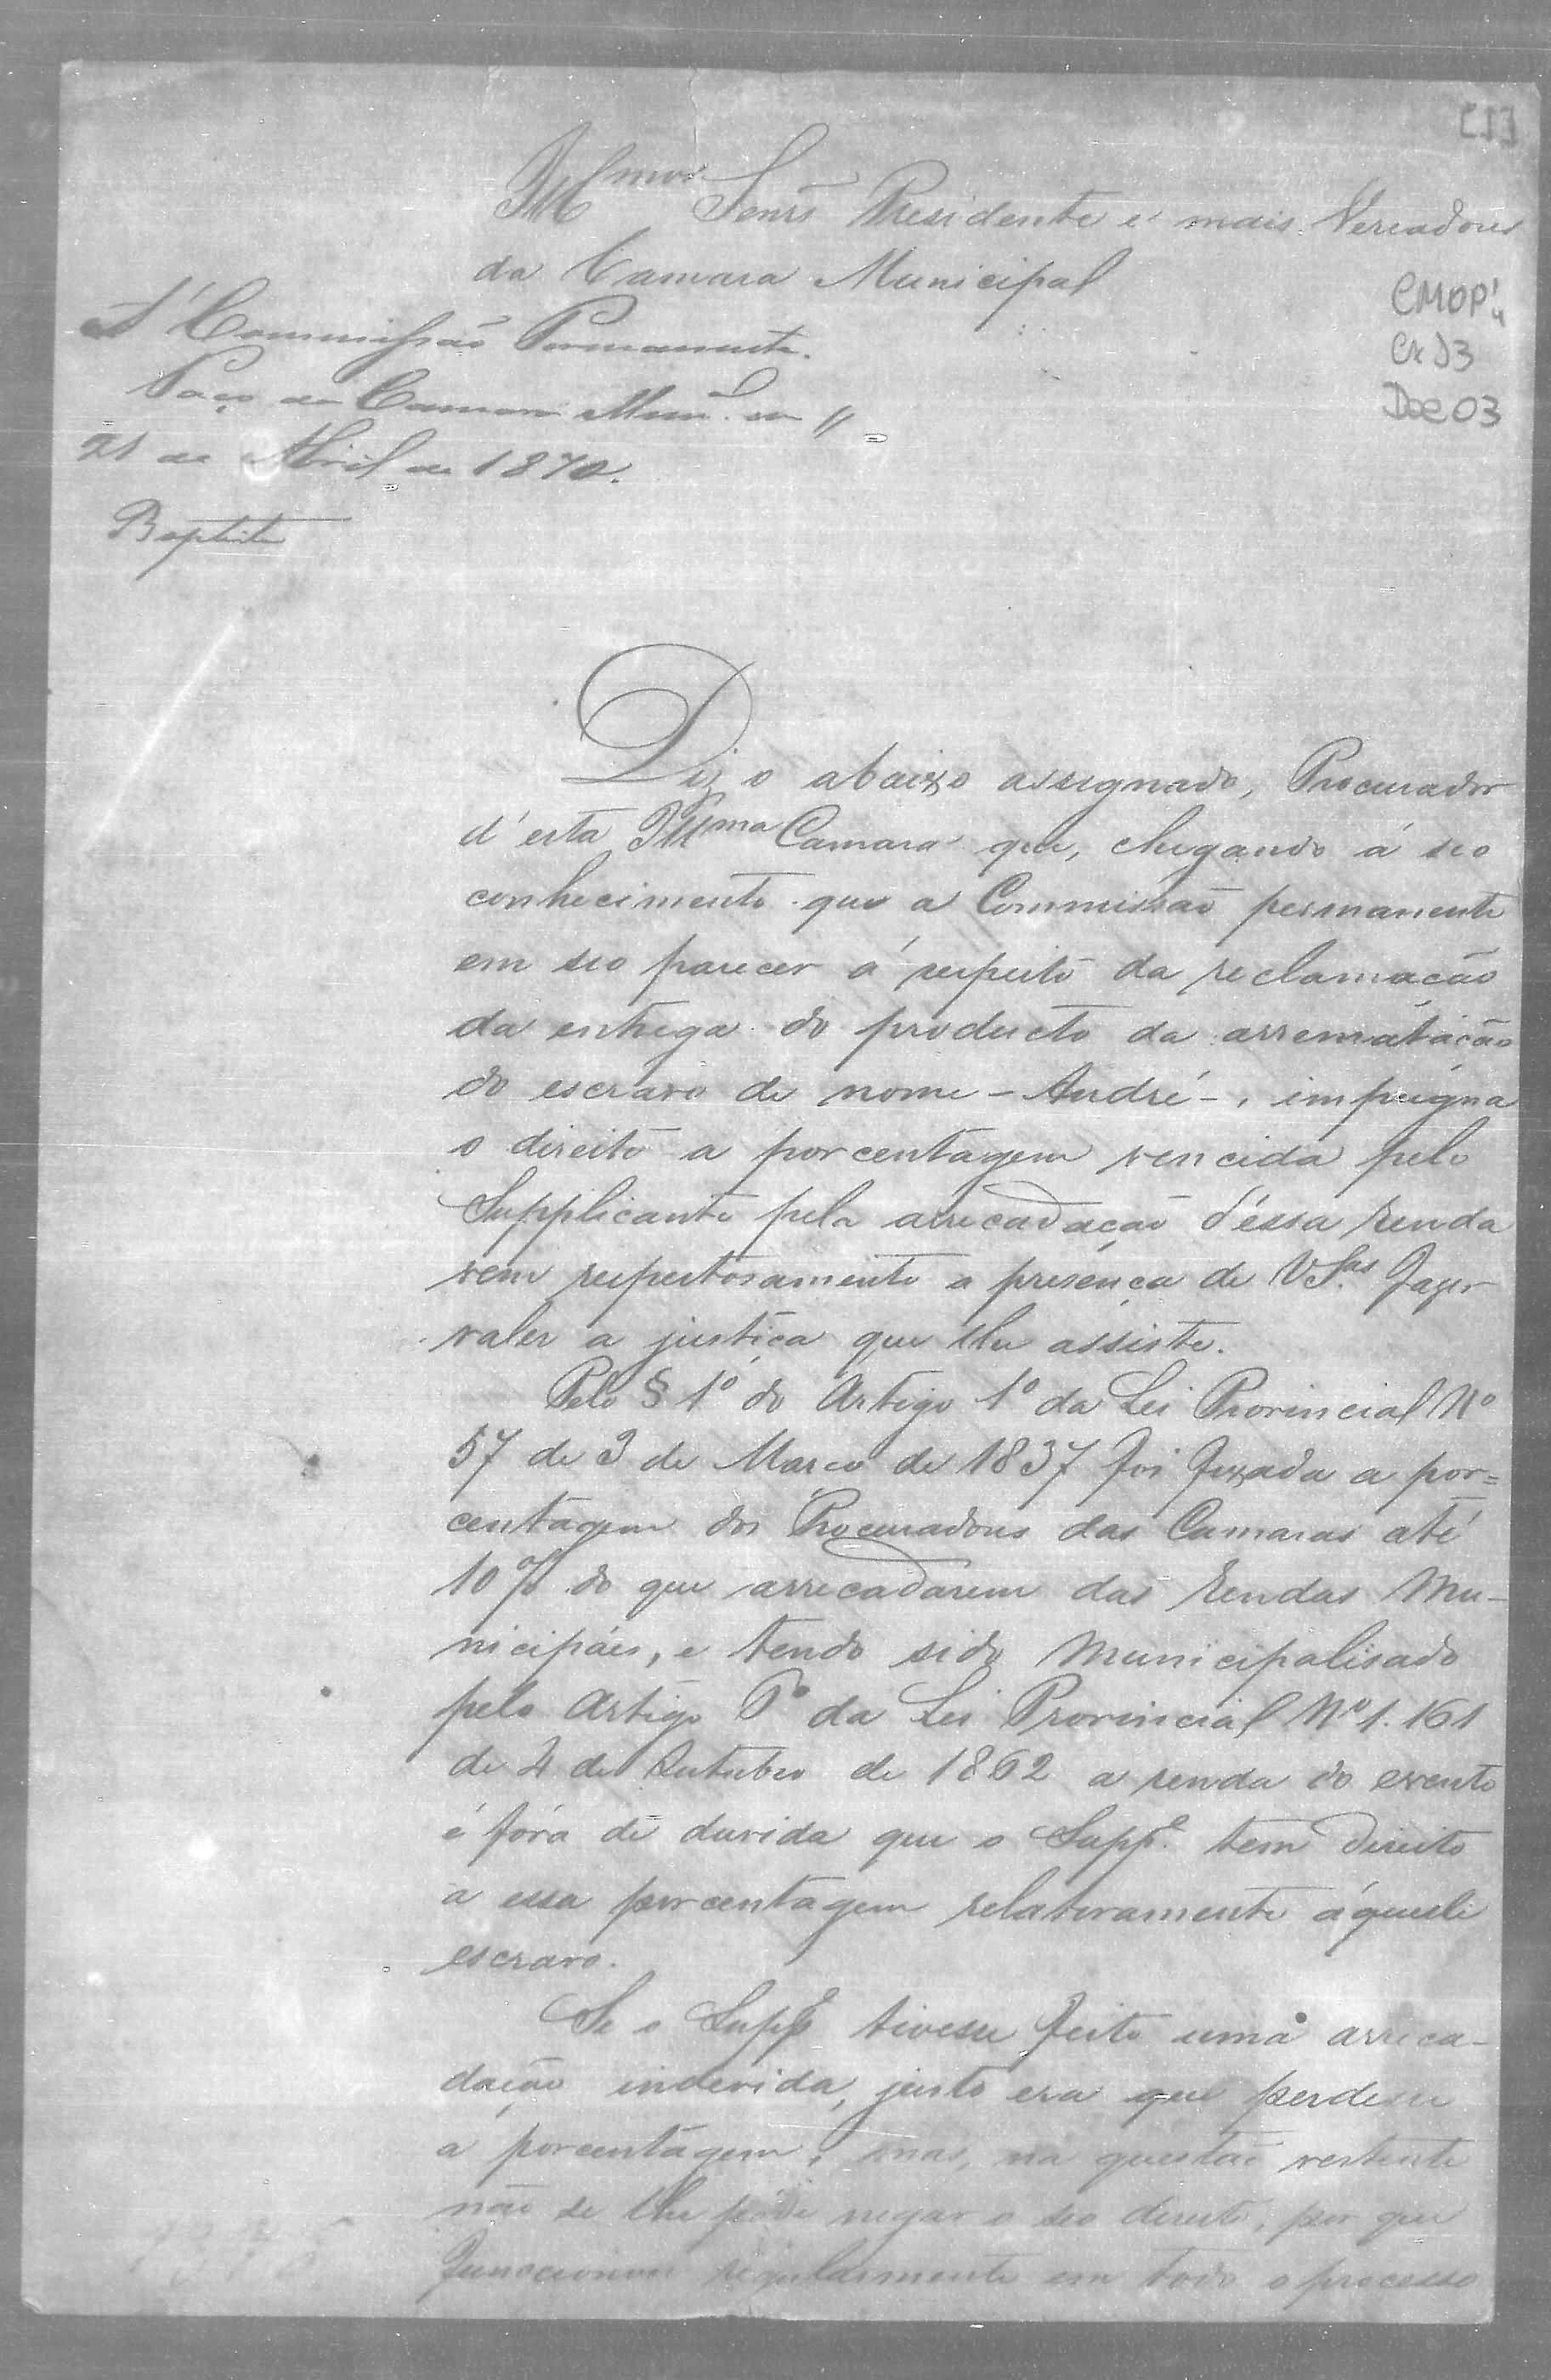 Illmos Senrs Presidente e mais Vereadores
da Camara Municipal
CMOP
Cx 03
Doc 03
A' Commissão Permanente.
Paço da Camara Munl. em
21 de Abril de 1870.
Baptista
Diz o abaixo assignado, Procurador
d'esta Illma Camara que, chegando á seo
conhecimento que a Commissão permanente
em seo parecer á respeito da reclamação
da entrega do producto da arrematação
do escravo de nome - André -, impugna
o direito a porcentagem vencida pelo
Supplicante pela arrecadação d'essa renda
vem respeitosamente a presença de VSas fazer
valer a justiça que lhe assiste.
Pelo § 1º do Artigo 1º da Lei Provincial Nº
57 de 3 de Março de 1837 foi fixada a por=
centagem dos Procuradores das Camaras até
10% do que arrecadarem das rendas Mu-
nicipáes, e tendo sido Municipalisado
pelo Artigo da Lei Provincial Nº 1.161
de 4 de Outubro de 1862 a renda do evento
é fóra de duvida que o Suppe. tem direito
a essa porcentagem relativamente áquelle
escravo.
Se o Suppe tivesse feito uma arreca-
dação indevida, justo era que perdesse
a porcentagem; mas, na questão vertente
não se lhe póde negar o seo direito, por que
funccionou regularmente em todo o processo